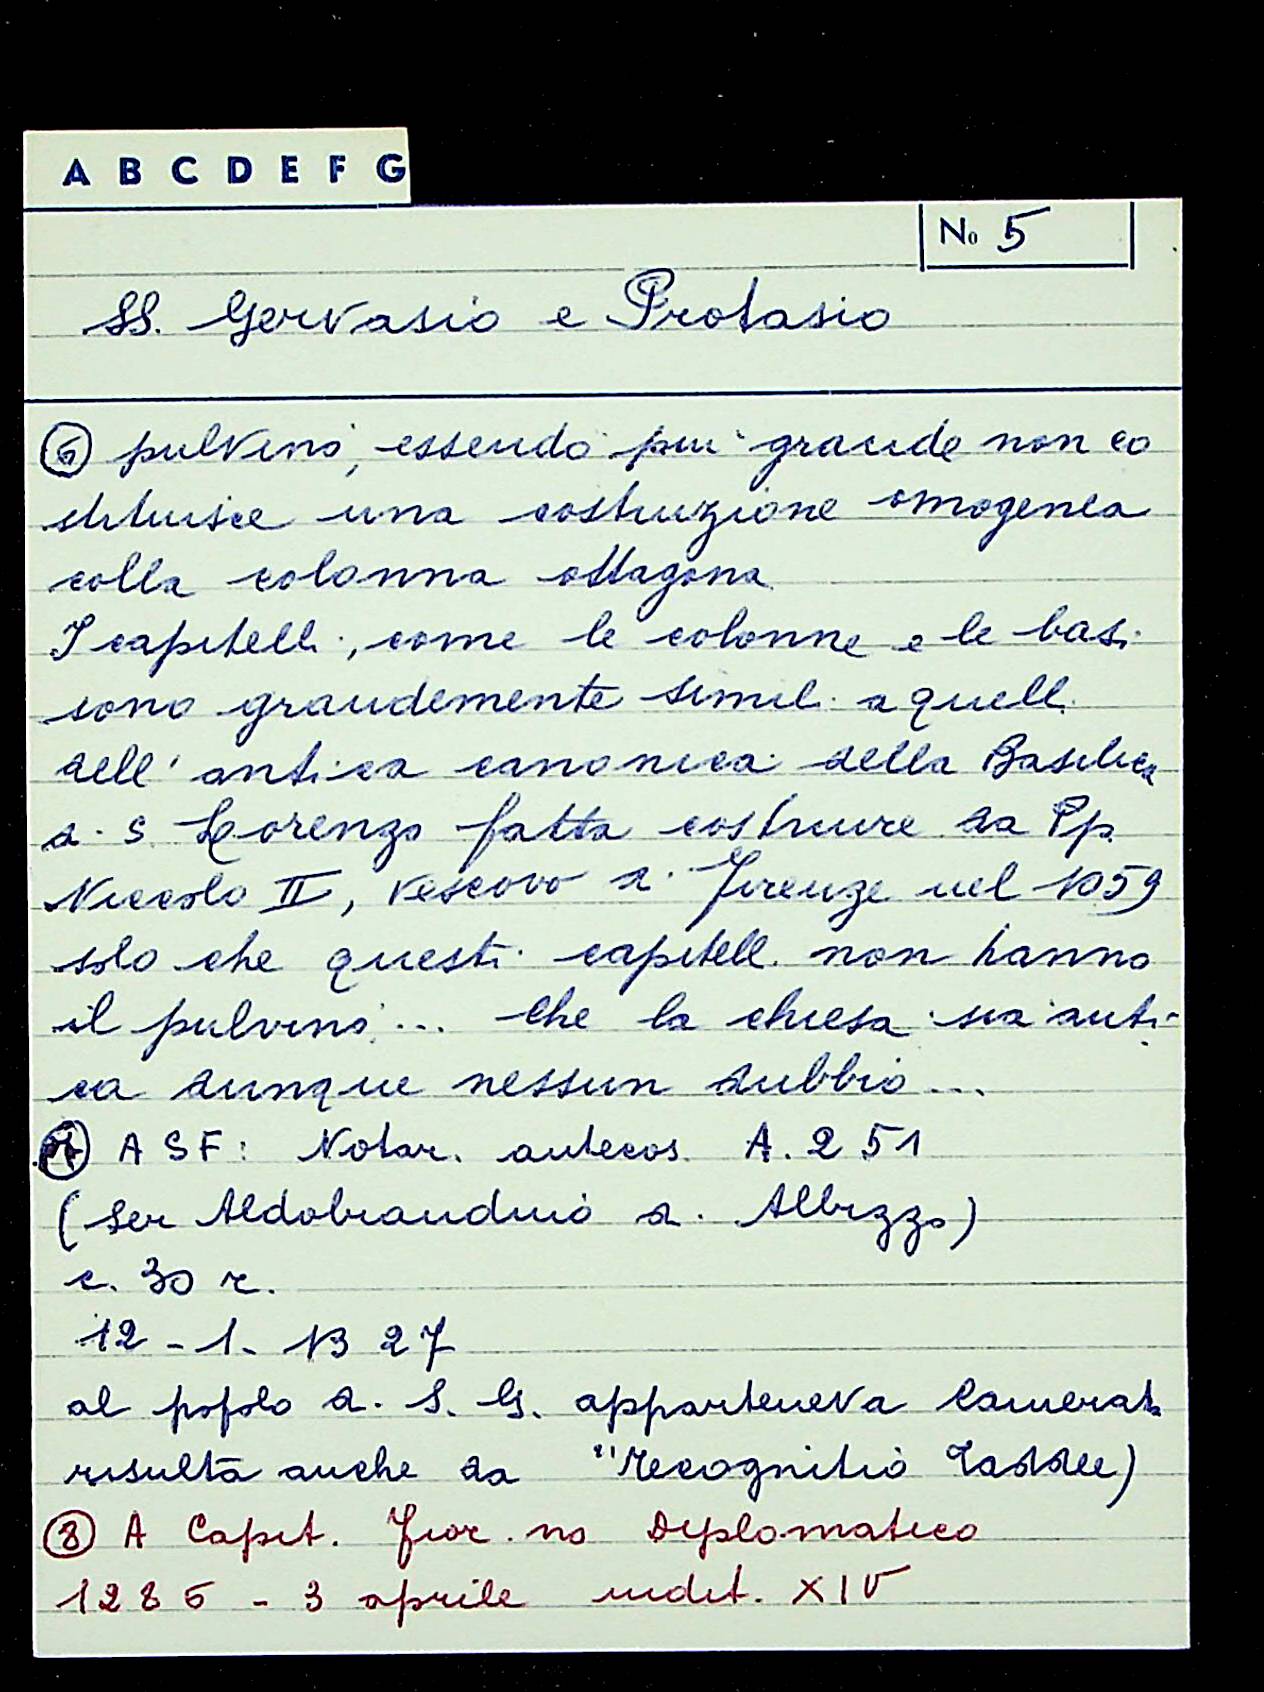 A B C D E F G
No 5
SS. Gervasio e Protasio
⑥ pulvino, essendo più grande non co
stituisce una costruzione omogenea
colla colonna ottagona
I capitelli, come le colonne e le basi
sono grandemente simili a quelli
dell'antica canonica della Basilica
di S. Lorenzo fatta costruire da Pp.
Niccolo II, vescovo di Firenze nel 1059
solo che questi capitelli non hanno
il pulvino... che la chiesa sia anti-
ca dunque nessun dubbio...
⑦ ASF: Notar. antecos. A. 251
(Ser Aldobrandino di Albizzo)
c. 30 r.
12-1-1327
al popolo di S. G. apparteneva Camerata
risulta anche da "Recognitio Taddee)
⑧ A Capit. Fior.no Diplomatico
1286 - 3 aprile indit. XIV